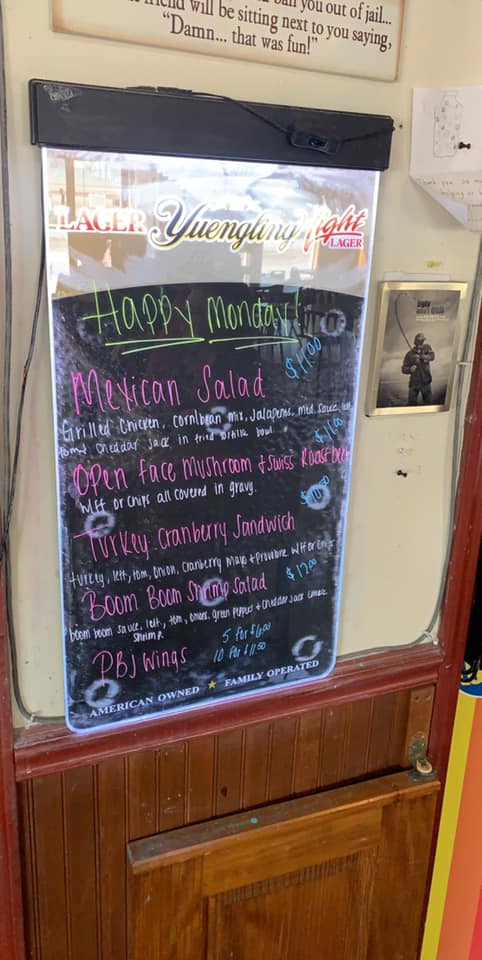 bail you out of jail...
friend will be sitting next to you saying,
"Damn... that was fun!"
LAGER Yuengling Light LAGER
Happy Monday!
Mexican Salad $11.00
Grilled Chicken, corn/bean mix, Jalapenos, med sauce, lett,
tom & cheddar jack in fried tortilla bowl.
Open Face Mushroom & Swiss Roast beef $11.00
W/FF or chips all covered in gravy.
Turkey Cranberry Sandwich
turkey, lett, tom, onion, cranberry mayo & provolone w/FF or chips
Boom Boom Shrimp Salad $12.00
boom boom sauce, lett, tom, onions, green peppers & cheddar Jack cheese
shrimp.
PBJ Wings 5 for $6.00
10 for $11.50
AMERICAN OWNED ★ FAMILY OPERATED
Thank you